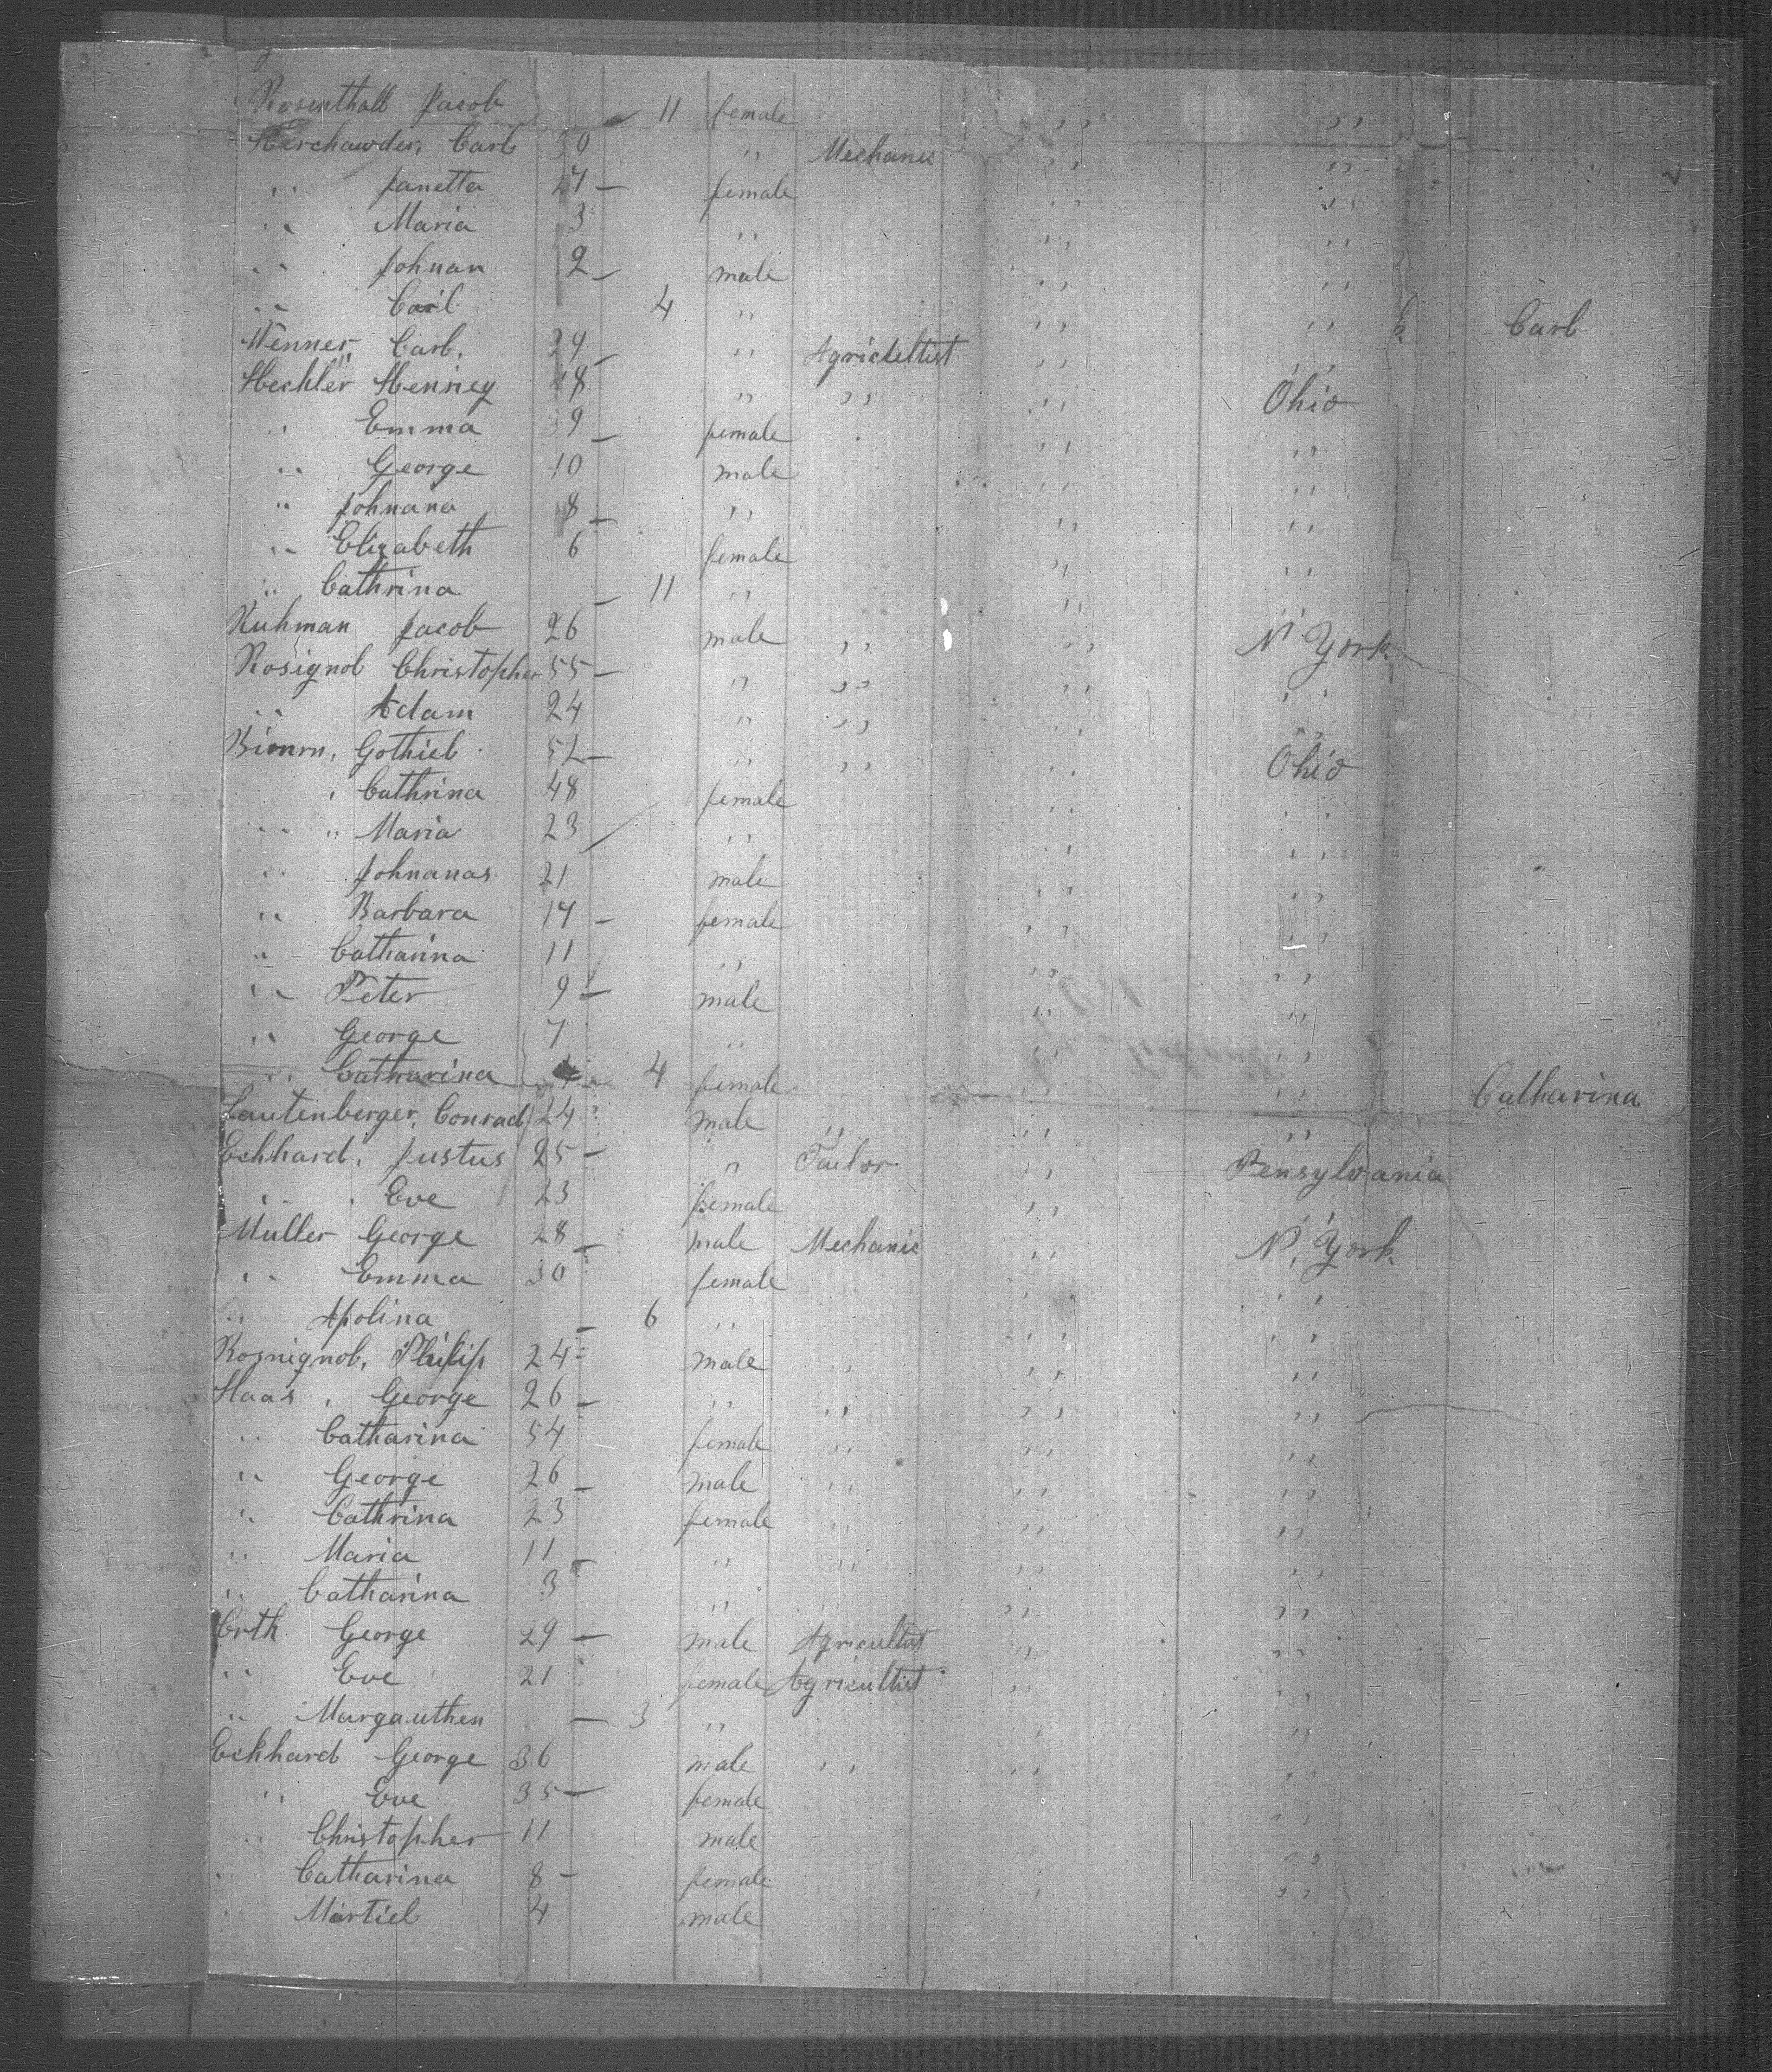 Rosenthall Jacob 11 female " "
Herchawder, Carl 30 " Mechanic " "
" Janetta 27 female " "
" Maria 3 " " "
" Johnan 2 male " "
" Carl 4 " " " Carl
Wenner, Carl, 24 " Agricleltist " "
Hechler Henriey 48 " " " Ohio
" Emma 39 female " "
" George 10 male " "
" Johnana 8 " " "
" Elizabeth 6 female " "
" Cathrina 11 " " "
Kuhman Jacob 26 male " " N York
Rosignol Christopher 55 " " " "
" Adam 24 " " " "
Bimrn, Gothieb 52 " " " Ohio
" Cathrina 48 female " "
" " Maria 23 " " "
" Johnanas 21 male " "
" Barbara 17 female " "
" Catharina 11 " " "
" Peter 9 male " "
" George 7 " " "
" Catharina 4 female " " Catharina
Lautenberger, Conrad 24 male " " "
Eckhard, Justus 25 " Tailor " Pensylvania
" Eve 23 female " "
Muller George 28 male Mechanic " N, York
" Emma 30 female " "
" Apolina 6 " " "
Rosnignol, Philip 24 male " " "
Haas, George 26 " " " "
" Catharina 54 female " " "
" George 26 male " " "
" Cathrina 23 female " " "
" Maria 11 " " " "
" Catharina 3 " " " "
Orth George 29 male Agricultist " "
" Eve 21 female Agricultist " "
" Margauthen 3 " "
Eckhard George 36 male " " "
" Eve 35 female "
" Christopher 11 male "
" Catharina 8 female "
" Martiel 4 male "